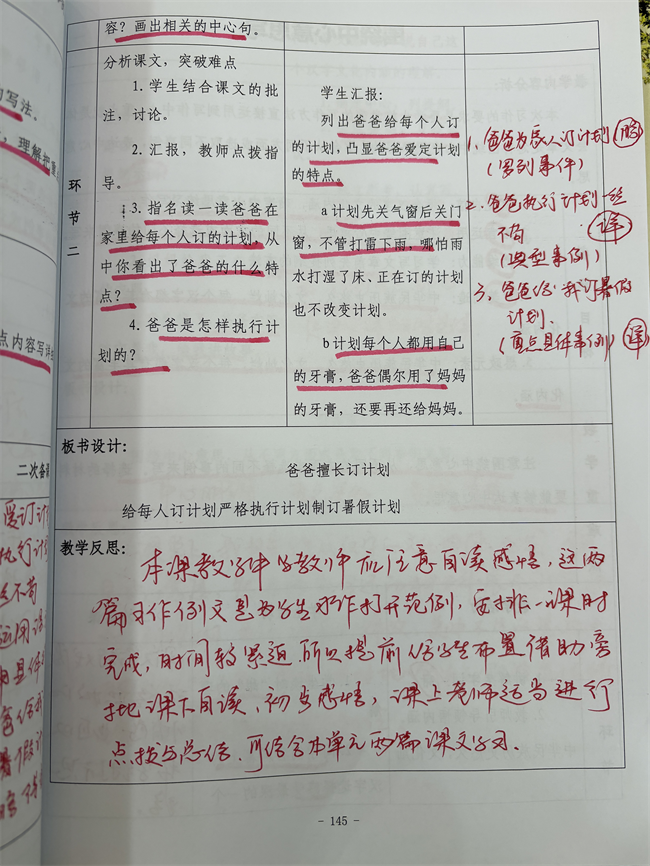 容？画出相关的中心句。
分析课文，突破难点
1. 学生结合课文的批
注，讨论。
2. 汇报，教师点拨指
导。
环
节
二
3. 指名读一读爸爸在
家里给每个人订的计划，从
中你看出了爸爸的什么特
点？
4. 爸爸是怎样执行计
划的？
学生汇报：
列出爸爸给每个人订
的计划，凸显爸爸爱定计划
的特点。
a 计划先关气窗后关门
窗，不管打雷下雨，哪怕雨
水打湿了床、正在订的计划
也不改变计划。
b 计划每个人都用自己
的牙膏，爸爸偶尔用了妈妈
的牙膏，还要再还给妈妈。
1、爸爸为家人订计划 略
（罗列事件）
2、爸爸执行计划一丝
不苟 详
（典型事例）
3、爸爸给我订暑假
计划.
（重点具体事例） 详
板书设计：
爸爸擅长订计划
给每人订计划严格执行计划制订暑假计划
教学反思：
本课教学时教师应注意自读感悟，这两
篇习作例文是为学生习作打开范例，安排一课时
完成，时间较紧迫所以提前给学生布置借助旁
批课下自读、初步感悟，课上老师适当进行
点拨与总结.可结合本单元两篇课文学习.
的写法。
理解把
点内容写详
二次备课
爱订计
执行计
丝不苟
运用
具体
爸给我
暑假计
- 145 -